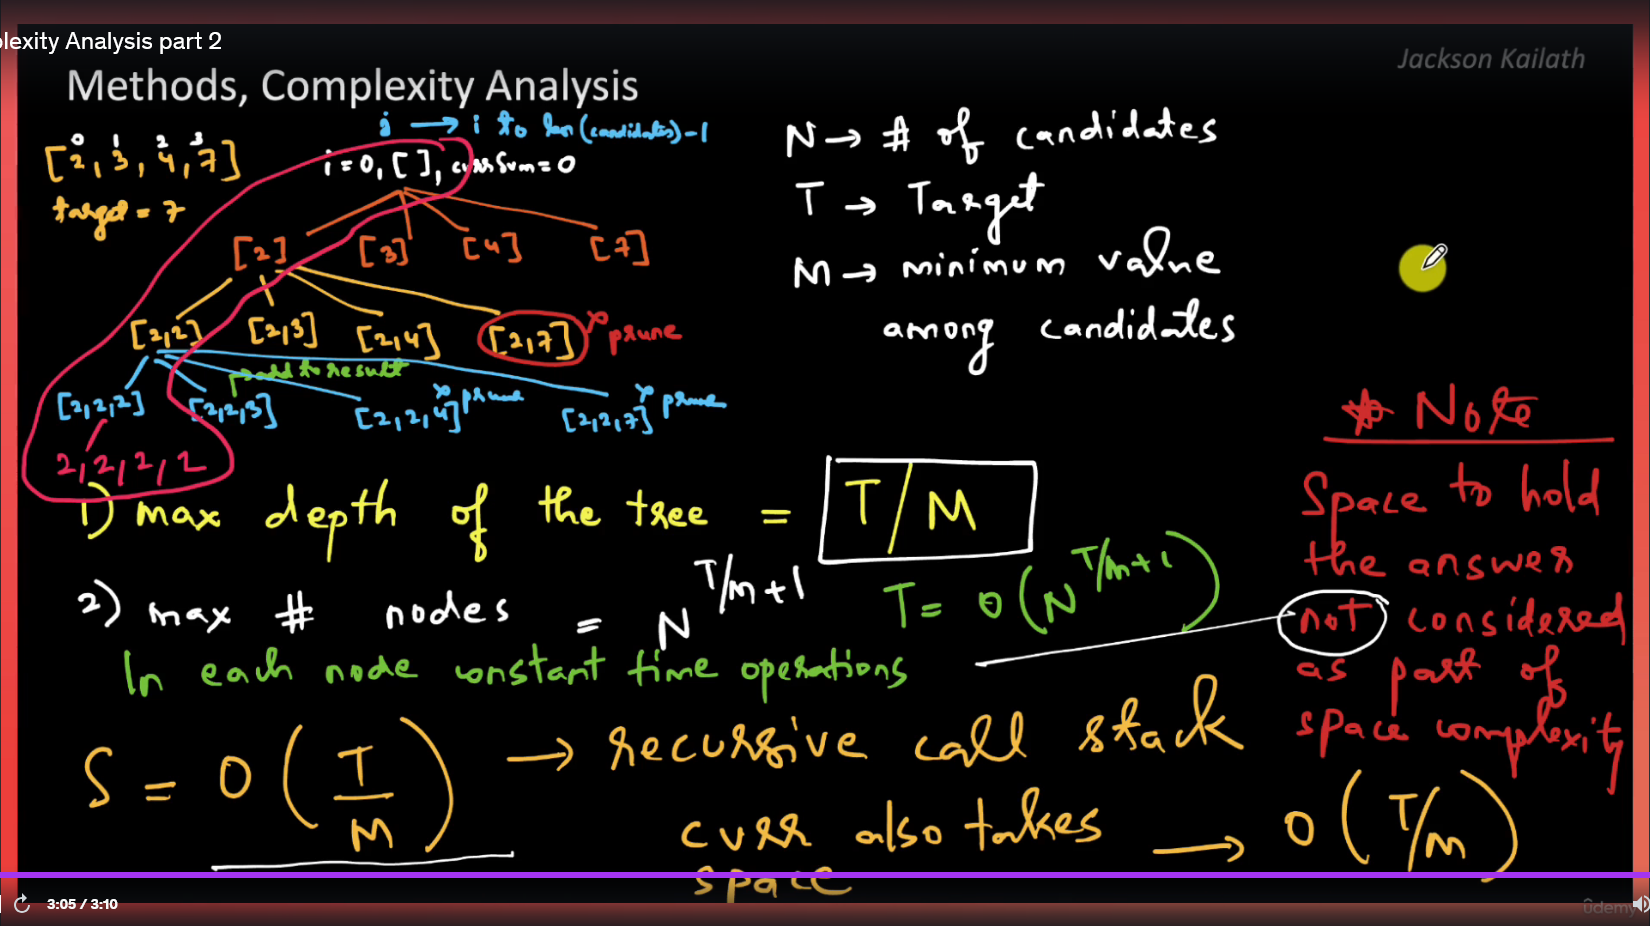 plexity Analysis part 2
Jackson Kailath
Methods, Complexity Analysis
j → i to len(candidates)-1
0 1 2 3
[2, 3, 4, 7]
i=0, [ ], currSum=0
target = 7
[2] [3] [4] [7]
[2,2] [2,3] [2,4] [2,7] x prune
add to result
[2,2,2] [2,2,3] [2,2,4] x prune [2,2,7] x prune
2,2,2,2
N → # of candidates
T → Target
M → minimum value
among candidates
1) max depth of the tree = T/M
2) max # nodes = N^T/m+1
T = O(N^T/m+1)
In each node constant time operations
S = O(T/M) → recursive call stack
curr also takes space → O(T/m)
* Note
Space to hold
the answer
not considered
as part of
space complexity
3:05 / 3:10
ûdemy